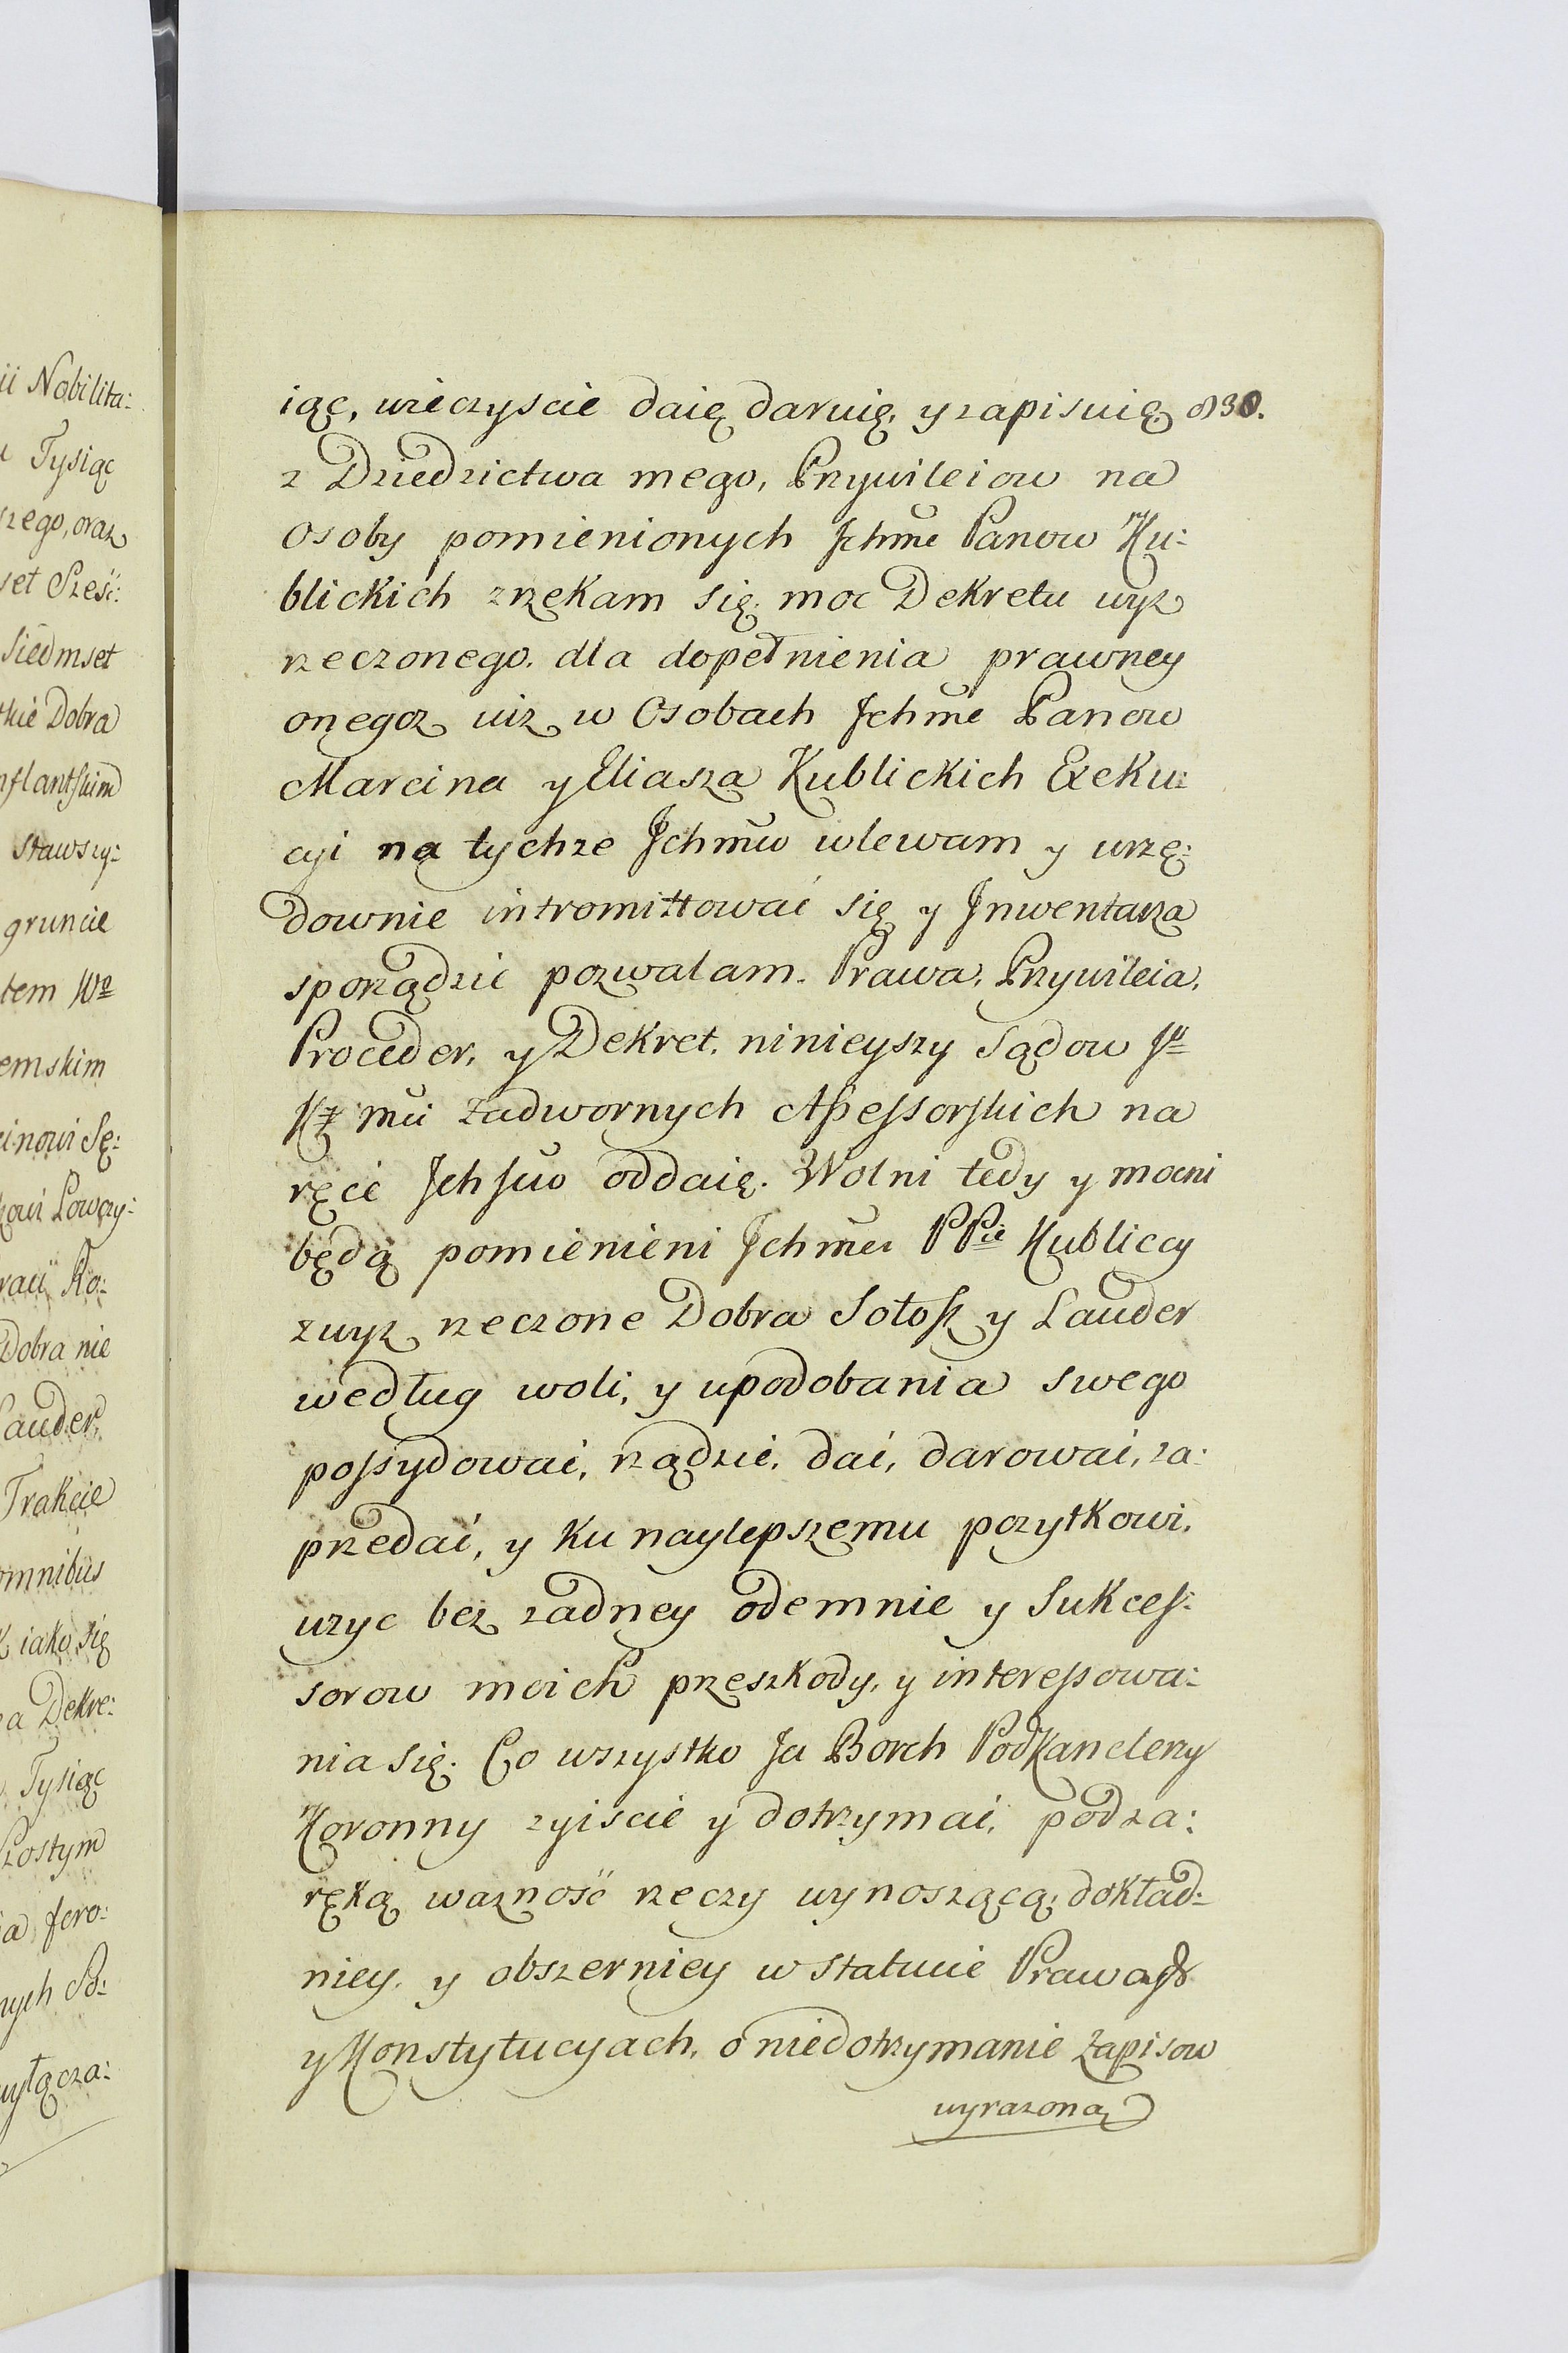 ii Nobilita:
Tysiąc
rzego, oraz
set Sześć:
Siedmset
tkie Dobra
nflantskim
stawszy:
gruncie
tem Wo
emskim
einowi Sę:
kowi Łowczy:
Ro:
Dobra nie
Lauder,
Trakcie
omnibus
iako się
a Dekre:
Tysiąc
Szostym
ia foro:
nych Po:
wyłącza:
iąc, wieczyscie daię daruię, y zapisuię 830.
z Dziedzictwa mego, Przywileiow na
Osoby pomienionych Jchmc Panow Ku:
blickich zrzekam się. moc Dekretu wyz
rzeczonego. dla dopełnienia prawney
onegoz iuz w Osobach Jchmc Panow
Marcina y Eliasza Kublickich Exeku:
cyi na tychze Jchmw wlewam y urzę:
downie intromittować się y Jnwentarza
sporządzic pozwalam. Prawa, Przywileia,
Proceder, y Dekret. ninieyszy Sądow
Zadwornych Assessorskich na
ręce oddaię. Wolni tedy y mocni
będą pomienieni Jchmci PPie Kubliccy
zwyz rzeczone Dobra Sołosz y Lauder
według woli, y upodobania swego
possydować, rządzić, dać, darować, za:
przedać, y ku naylepszemu pozytkowi,
uzyc bez zadney odemnie y Sukces:
sorow moich przeszkody, y interessowa:
nia się. Co wszystko Ja Borch Podkanclerzy
Koronny zyiscic y dotrzymać, pod za:
ręką wazność rzeczy wynoszącą, dokład:
niey, y obszerniey w statucie Prawa
y Konstytucyach, o niedotrzymanie Zapisow
wyrazoną